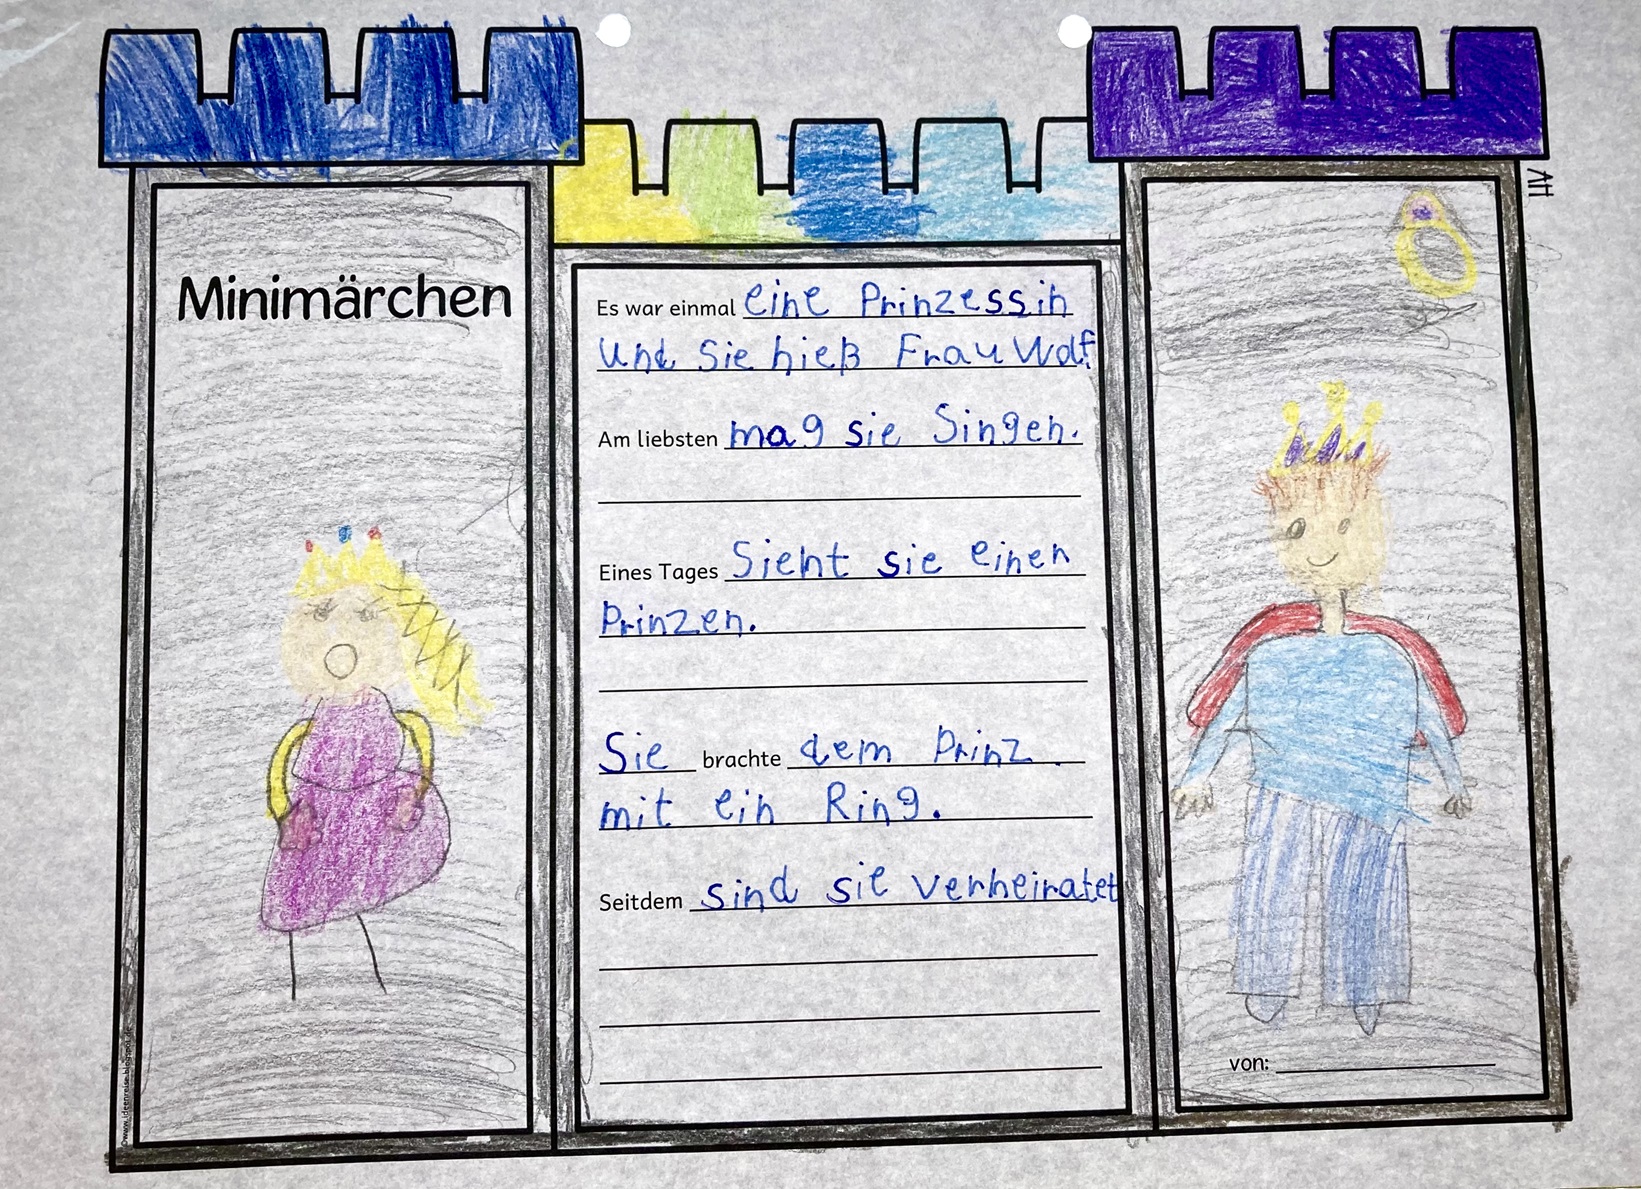 Minimärchen
Es war einmal eine Prinzessin
und Sie hieß Frau Wolf.
Am liebsten mag sie Singen.
Eines Tages Sieht sie einen
Prinzen.
Sie brachte dem Prinz
mit ein Ring.
Seitdem sind sie verheiratet
von:
©www.ideenreise.blogspot.de